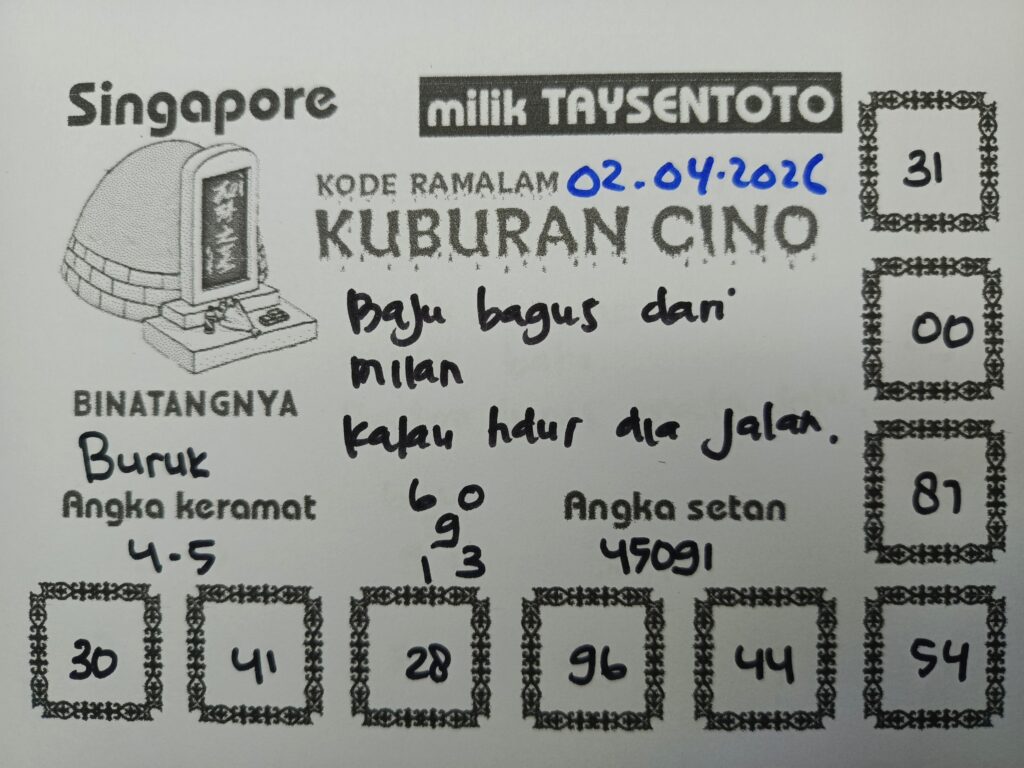 Singapore
milik TAYSENTOTO
KODE RAMALAM 02.04.2026
KUBURAN CINO
Baju bagus dari
milan
kalau hdur dia jalan.
BINATANGNYA
Buruk
Angka keramat
4-5
6 0
9
1 3
Angka setan
45091
31
00
87
30 41 28 96 44 54